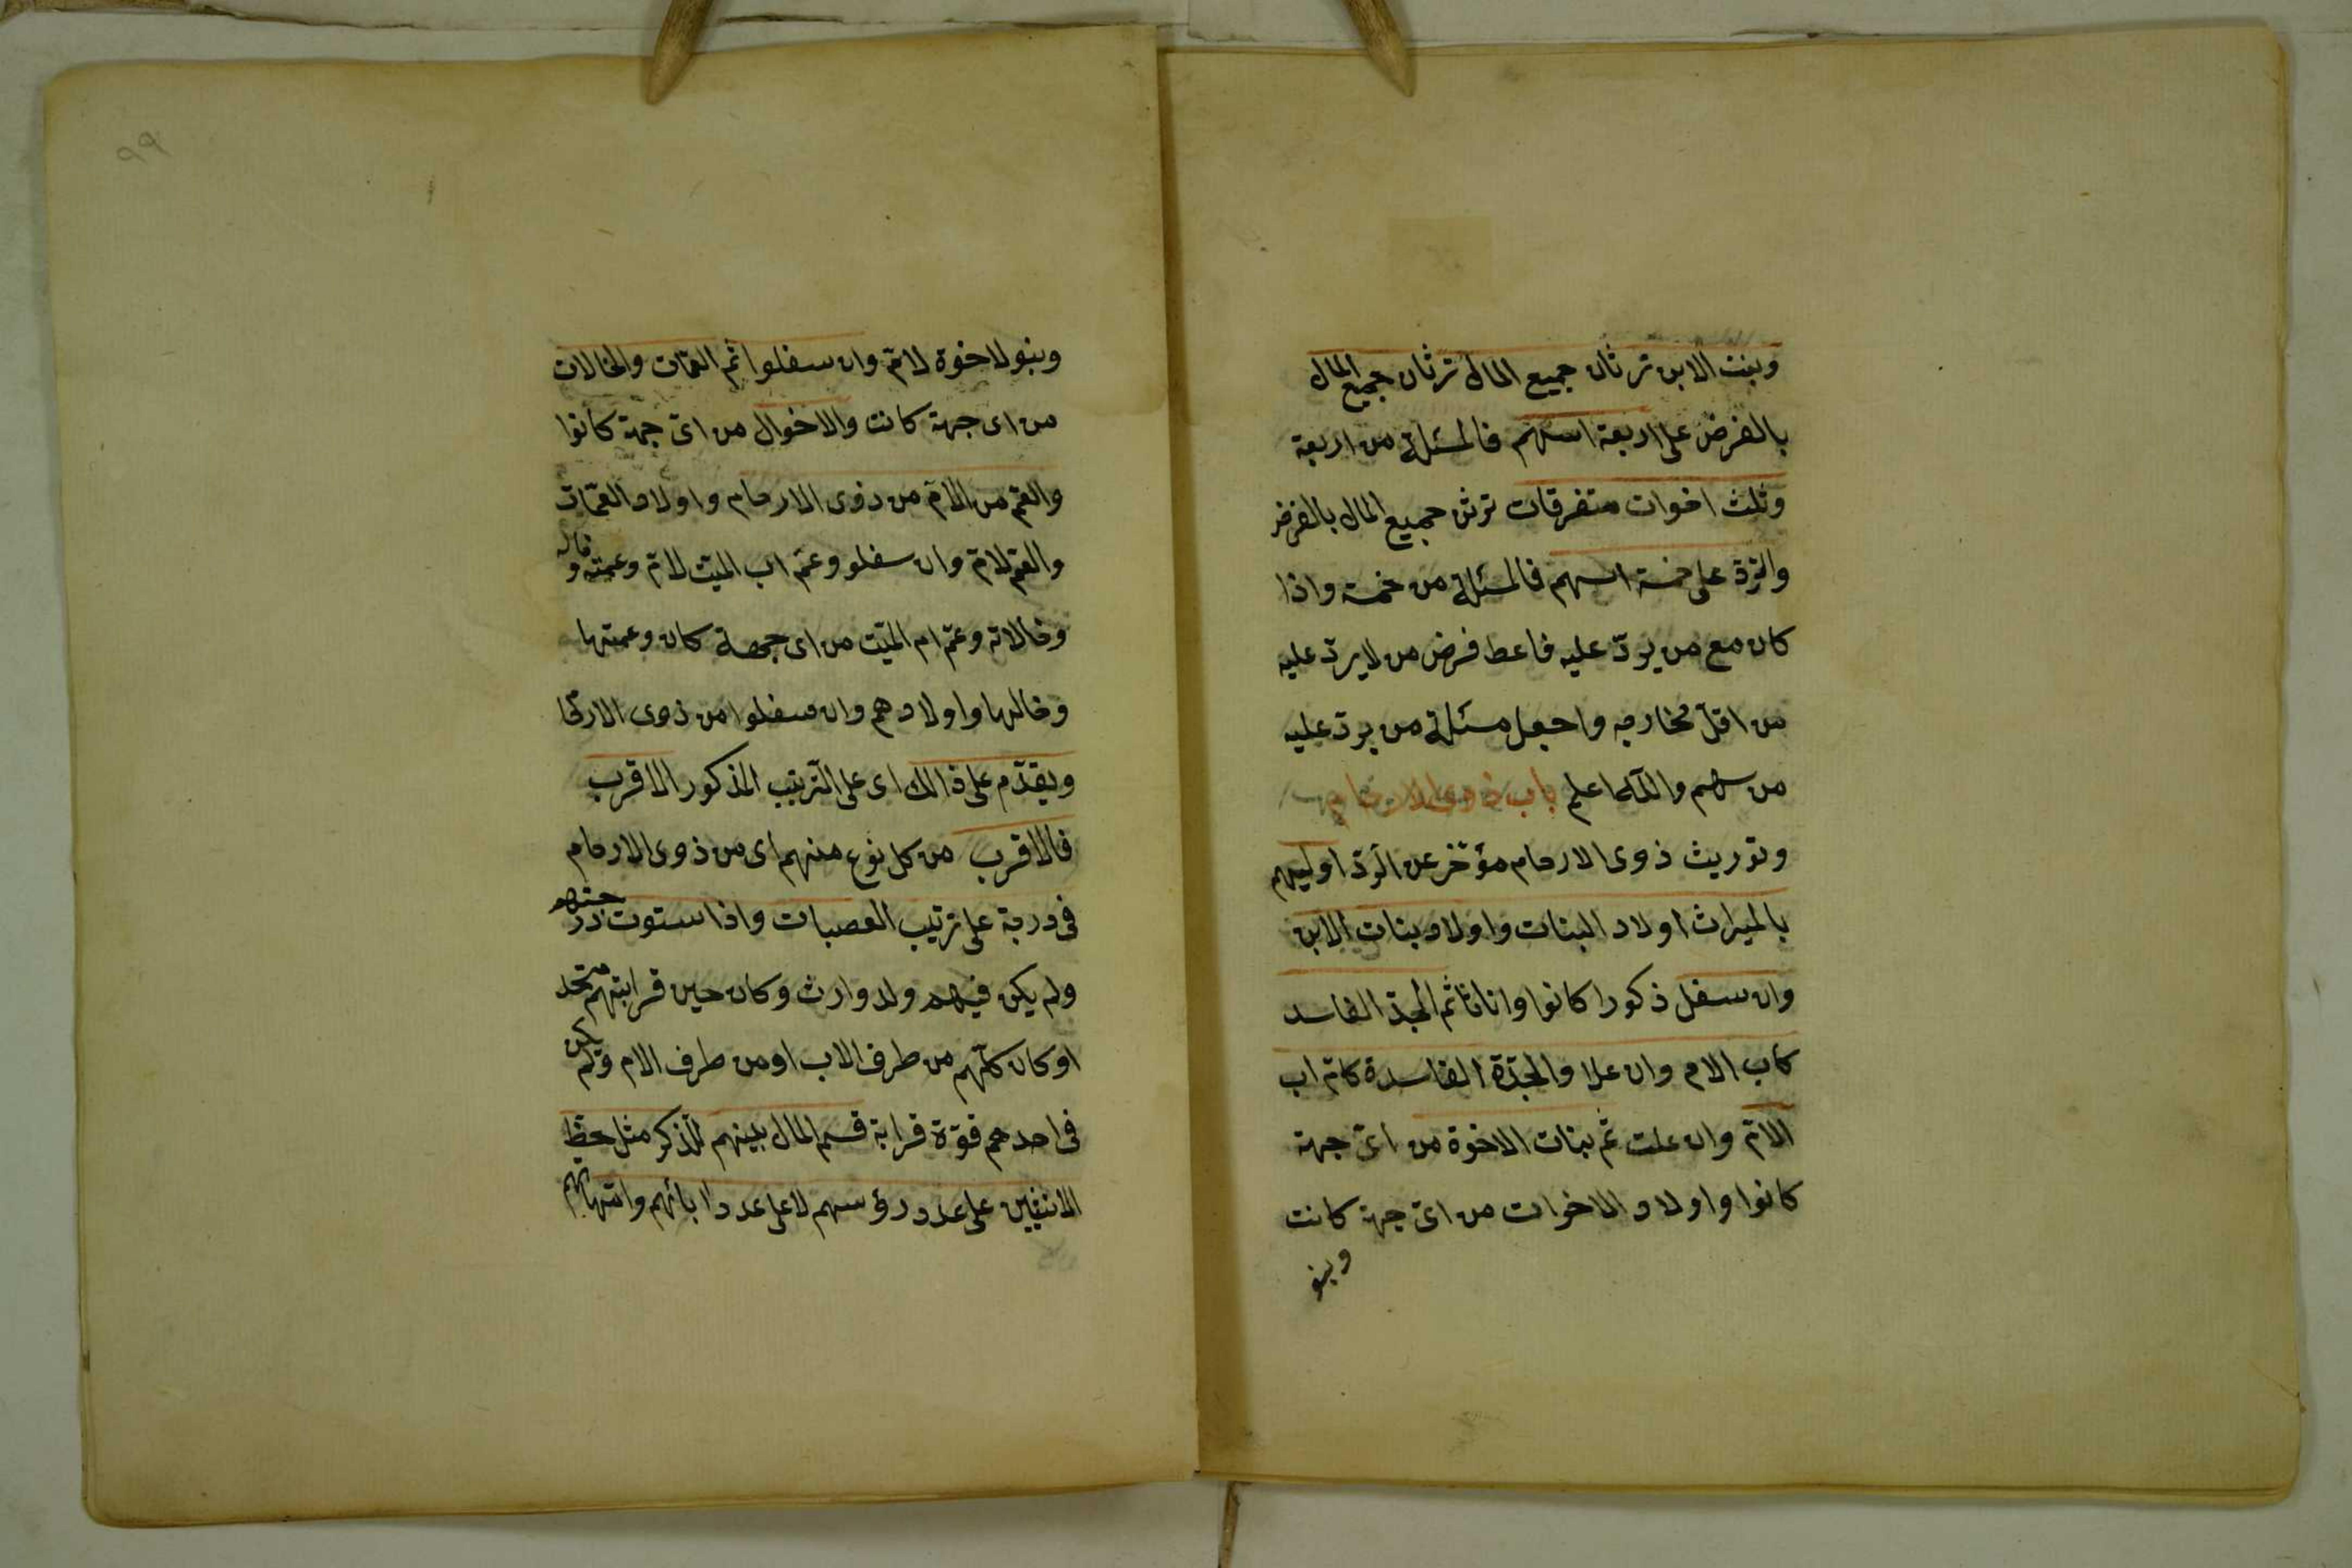 وبنت الابن ترثان جميع المال ترثان جميع المال
بالفرض على اربعة اسهم فالمسئلة من اربعة
وثلث اخوات متفرقات ترثن جميع المال بالفرض
والرّد على خمسة اسهم فالمسئلة من خمسة واذا
كان مع من يردّ عليه فاعط فرض من لا يردّ عليه
من اقلّ مخارجه واجعل مسئلة من يردّ عليه
من سهم والله اعلم باب ذوى الارحام
وتوريث ذوى الارحام مؤخّر عن الرّد اوليهم
بالميراث اولاد البنات واولاد بنات الابن
وان سفل ذكورا كانوا واناثا ثم الجدّ الفاسد
كاب الام وان علا والجدّة الفاسدة كامّ اب
الامّ وان علت ثم بنات الاخوة من اىّ جهة
كانوا واولاد الاخوات من اىّ جهة كانت
وبنو
٩٩
وبنو لاخوة لامّ وان سفلوا ثم العمّات والخالات
من اى جهة كانت والاخوال من اىّ جهة كانوا
والعمّ من الامّ من ذوى الارحام واولاد العمّات
والعم لامّ وان سفلو وعمّ اب الميّت لامّ وعمته وخاله
وخالاته وعمّ ام الميّت من اى جهة كان وعمتها
وخالها واولادهم وان سفلوا من ذوى الارحا
ويقدّم على ذالك اى على الترتيب المذكور الاقرب
فالاقرب من كل نوع منهم اى من ذوى الارحام
فى درجة على ترتيب العصبات واذا ستوت درجتهم
ولم يكن فيهم ولد وارث وكان حين قرابتهم متحد
او كان كلّهم من طرف الاب او من طرف الام ولم يكن
فى احدهم قوّة قرابة قسم المال بينهم للذكر مثل حظّ
الانثيين على عدد رؤسهم لا على عدد ابائهم وامّهاتهم